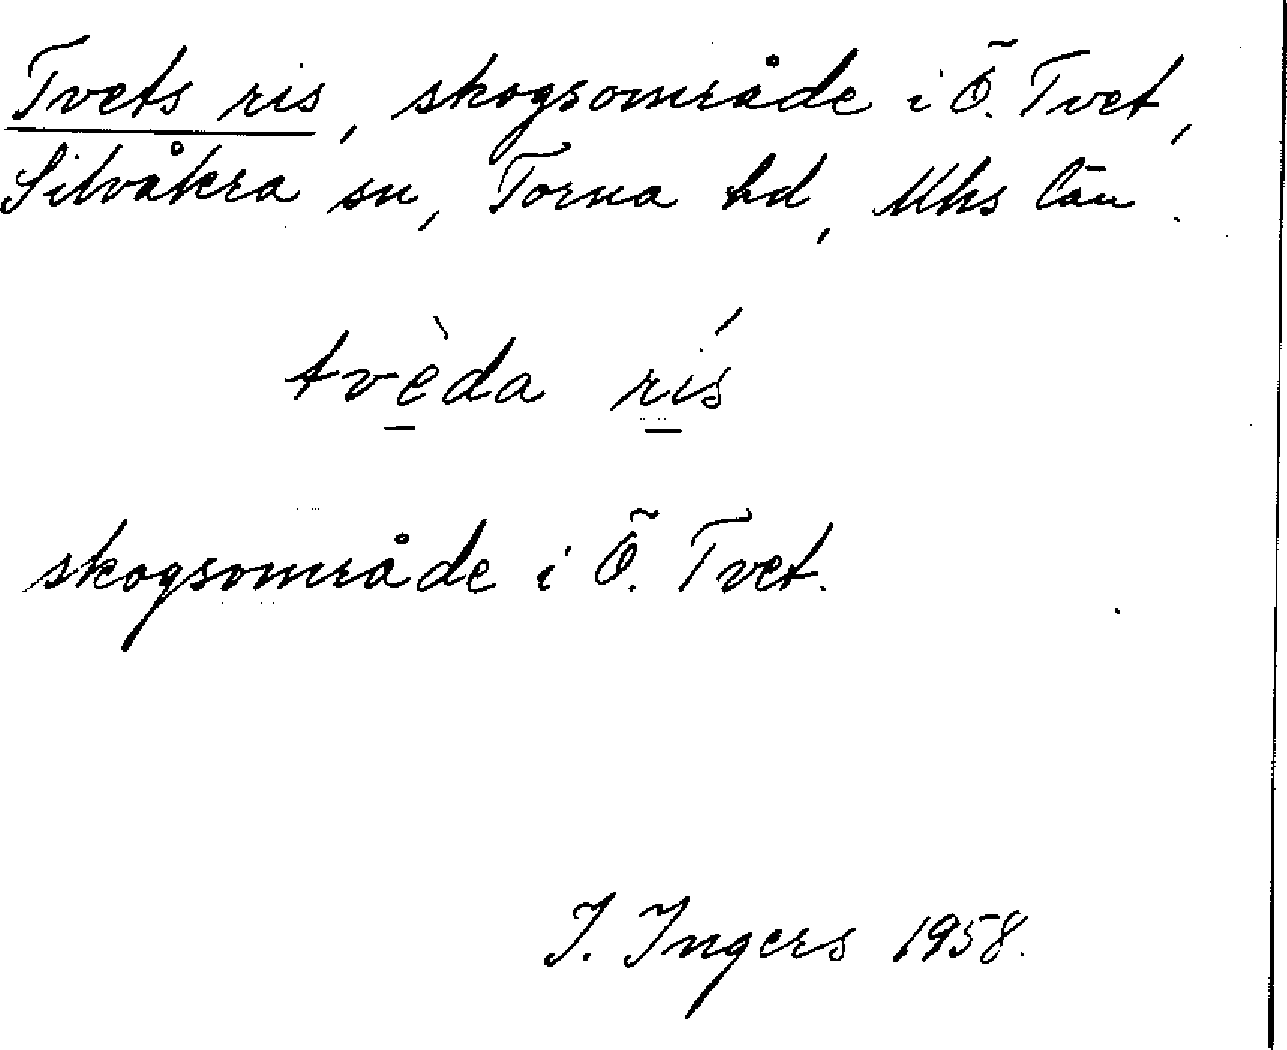 Tvets ris, skogsområde i Ö. Tvet,
Silvåkra sn, Torna hd, Mhs län.
tvèda rís
skogsområde i Ö. Tvet.
I. Ingers 1958.